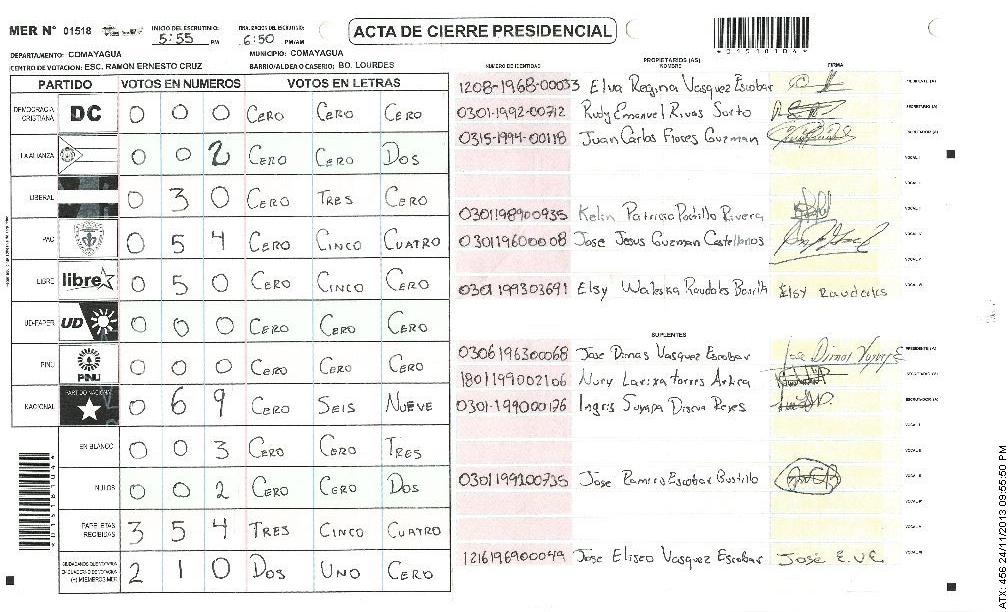 MER N° 01518
INICIO DEL ESCRUTINIO: 5:55 PM
FINALIZACION DEL ESCRUTINIO: 6:50 PM/AM
ACTA DE CIERRE PRESIDENCIAL
*01518104*
DEPARTAMENTO: COMAYAGUA
MUNICIPIO: COMAYAGUA
CENTRO DE VOTACION: ESC. RAMON ERNESTO CRUZ
BARRIO/ALDEA O CASERIO: BO. LOURDES
PARTIDO VOTOS EN NUMEROS VOTOS EN LETRAS
DEMOCRACIA CRISTIANA DC 0 0 0 CERO CERO CERO
LA ALIANZA 0 0 2 CERO CERO DOS
LIBERAL 0 3 0 CERO TRES CERO
PAC 0 5 4 CERO CINCO CUATRO
LIBRE libre 0 5 0 CERO CINCO CERO
UD-FAPER UD 0 0 0 CERO CERO CERO
PINU PINU 0 0 0 CERO CERO CERO
NACIONAL PARTIDO NACIONAL 0 6 9 CERO SEIS NUEVE
EN BLANCO 0 0 3 CERO CERO TRES
NULOS 0 0 2 CERO CERO DOS
PAPELETAS RECIBIDAS 3 5 4 TRES CINCO CUATRO
2 1 0 DOS UNO CERO
*01518104*
PROPIETARIOS (AS)
NUMERO DE IDENTIDAD NOMBRE FIRMA
1208-1968-00033 Elva Regina Vasquez Escobar PRESIDENTE (A)
0301-1992-00712 Rudy Emanuel Rivas Surto SECRETARIO (A)
0315-1994-00118 Juan Carlos Flores Guzman ESCRUTADOR (A)
VOCAL I
0301198900935 Kelin Patricia Portillo Rivera
0301196000008 Jose Jesus Guzman Castellanos
0301199303691 Elsy Waleska Raudales Bonilla Elsy Raudales
SUPLENTES
0306196300068 Jose Dimas Vasquez Escobar PRESIDENTE (A)
1801199002106 Nury Larixa Torres SECRETARIO (A)
0301-199000176 Ingris Suyapa Discua Reyes ESCRUTADOR (A)
0301199200735 Jose Ramiro Escobar Bustillo
1216196900049 Jose Eliseo Vasquez Escobar José E.V.E
ATX: 456 24/11/2013 09:55:50 PM